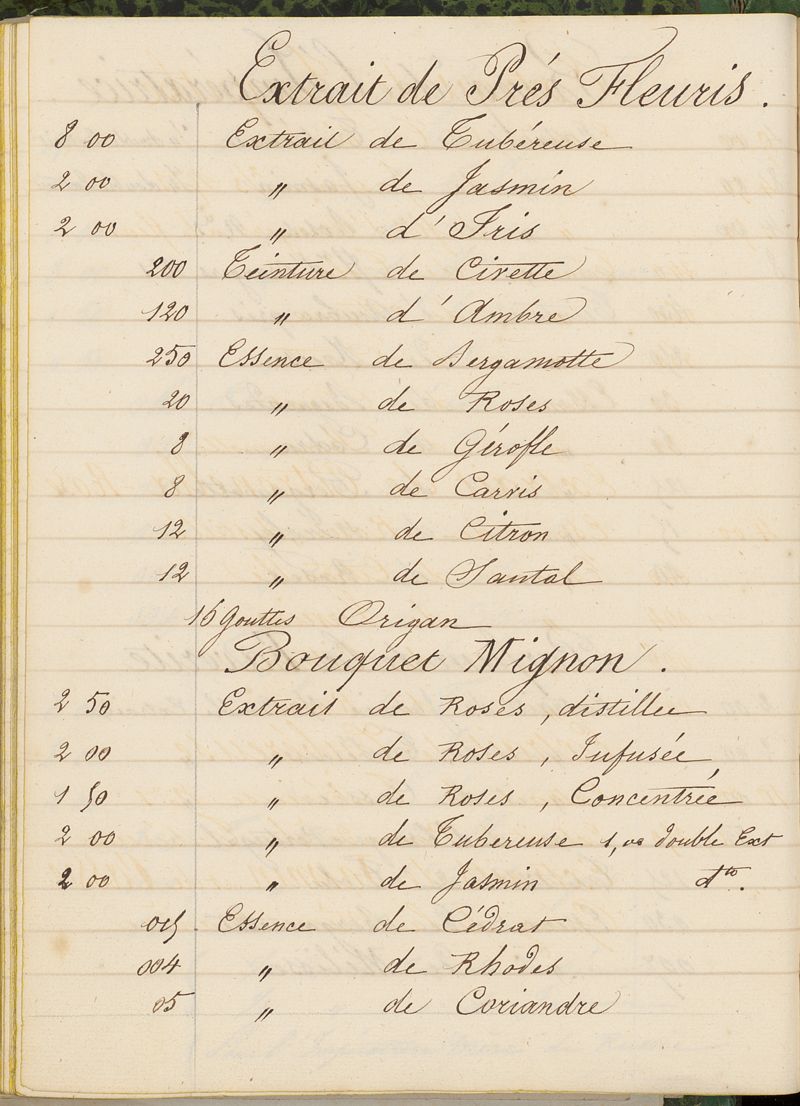 Extrait de Prés Fleuris.
8 00 Extrait de Tubéreuse
2 00 " de Jasmin
2 00 " d'Iris
200 Teinture de Civette
120 " d'Ambre
250 Essence de Bergamotte
20 " de Roses
8 " de Gérofle
8 " de Carvis
12 " de Citron
12 " de Santal
16 gouttes Origan
Bouquet Mignon.
2 50 Extrait de Roses, distillee
2 00 " de Roses, Infusée
1 50 " de Roses, Concentrée
2 00 " de Tubereuse 1,00 double Ext
2 00 " de Jasmin dto.
015 Essence de Cédrat
004 " de Rhodes
05 " de Coriandre